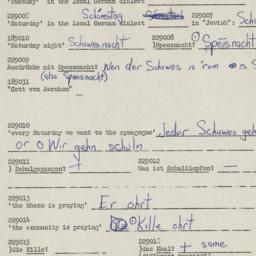 "Tuesday" in the local German dialect
229006 Schomstag 229007
"Saturday" in the local German dialect in "Jewish": Scha
185010 229008
"Saturday night" Schawesnacht )Speesnacht? Speisnacht
229009
Ausdrücke mit Speesnacht: Wen der Schawes is 'rum is S
185031 (also Speesnacht)
"Gott von Avrohom" –
229010
'every Saturday we went to the synagogue' Jeder Schawes geh
or O Wir gehn schuln
229011 229012
) Schulgangen? + Was ist Schulklopfen? –
229013
'the khazn is praying' Er ohrt
229014
'the community is praying' Kille ohrt
229015 229015
)die Kille? )das Kaal? + same